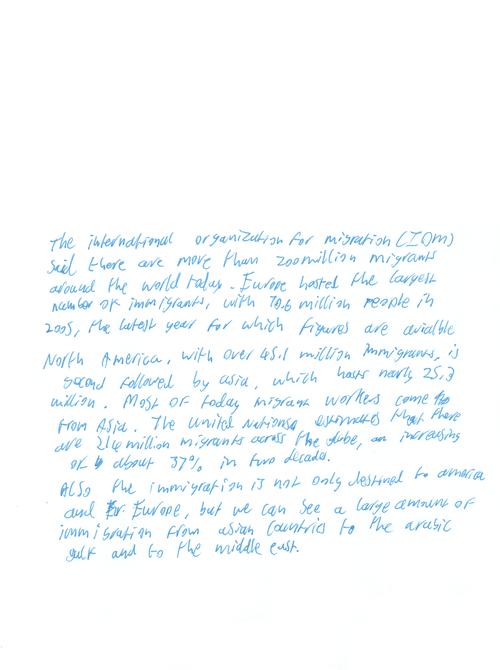 The international organization for migration (IOm)
Said there are more than 200 million migrants
around the world today. Europe hosted the largest
number of immigrants, with 70.6 million people in
2005, the latest year for which figures are avialble
North America, with over 45.1 million immigrants, is
second followed by asia, which hosts nearly 25.3
million. Most of today migrant workers come
from Asia. The United Nations estimates that there
are 214 million migrants across the globe, an increasing
of about 37% in two decades.
Also the immigration is not only destined to america
and Europe, but we can see a large amount of
immigration from asian countries to the arabic
gulf and to the middle east.